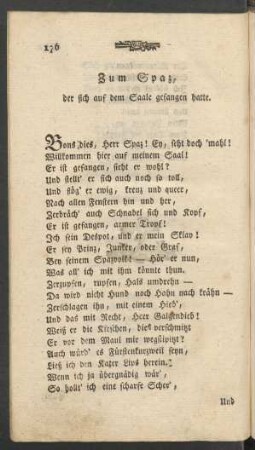 176
Zum Spaz,
der sich auf dem Saale gefangen hatte.
Bons dies, Herr Spaz! Ey, seht doch 'mahl!
Willkommen hier auf meinem Saal!
Er ist gefangen, sieht er wohl?
Und stellt' er sich auch noch so toll,
Und flög' er ewig, kreuz und queer,
Nach allen Fenstern hin und her,
Zerbräch' auch Schnabel sich und Kopf,
Er ist gefangen, armer Tropf!
Ich sein Despot, und er mein Sklav!
Er sey Prinz, Junker, oder Graf,
Bey seinem Spazvolk! — Hör' er nun,
Was all' ich mit ihm könnte thun.
Zerzupfen, rupfen, Hals umdrehn —
Da wird nicht Hund noch Hahn nach krähn —
Zerschlagen ihn, mit einem Hieb,
Und das mit Recht, Herr Galgendieb!
Weiß er die Kirschen, die verschmitzt
Er vor dem Maul mir wegstipitzt?
Auch würd' es Fürstenkurzweil seyn,
Ließ ich den Kater Lips herein.
Wenn ich ja übergnädig wär',
So hohlt' ich eine scharfe Scher',
Und